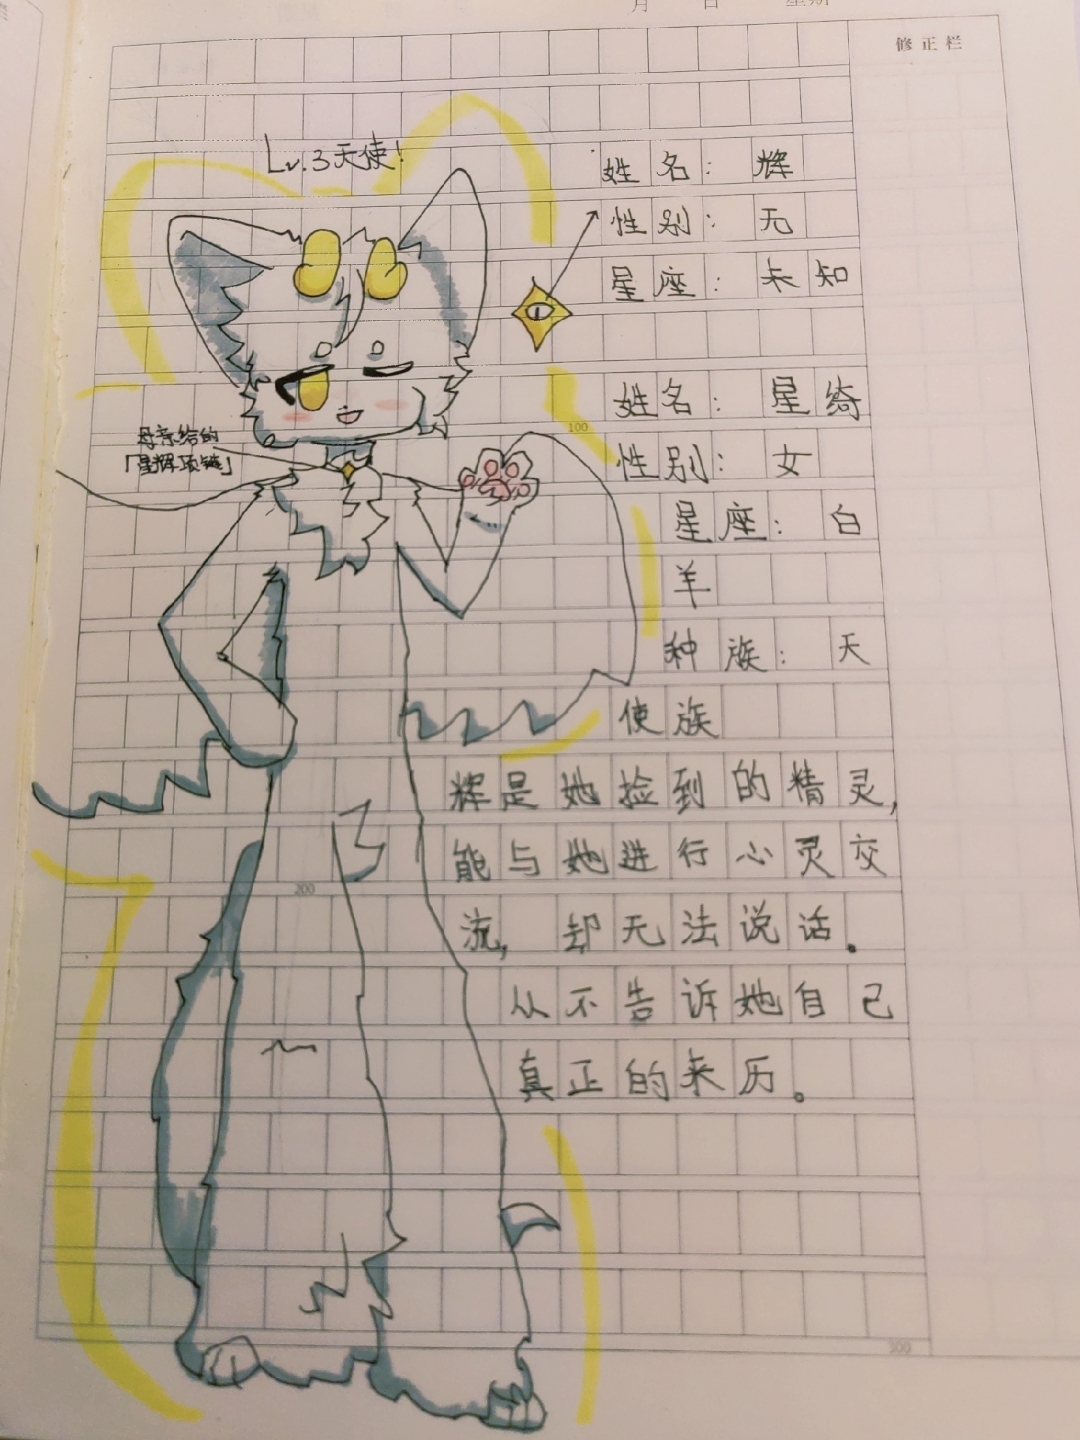 月 日 星期
修正栏
Lv.3天使!
姓名: 辉
性别: 无
星座: 未知
姓名: 星绮
100
性别: 女
母亲给的
「星辉项链」
星座: 白
羊
种族: 天
使族
辉是她捡到的精灵,
能与她进行心灵交
200
流, 却无法说话。
从不告诉她自己
真正的来历。
300